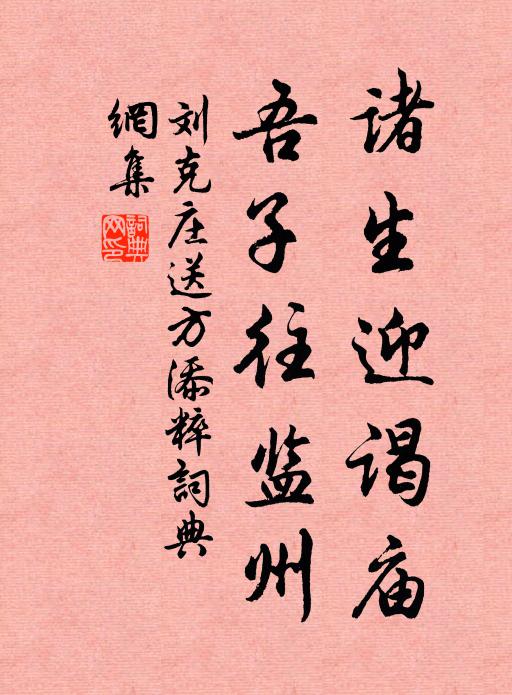 诸生迎谒庙
吾子往监州
刘克庄送方添粹詞典
網集
詞典网印